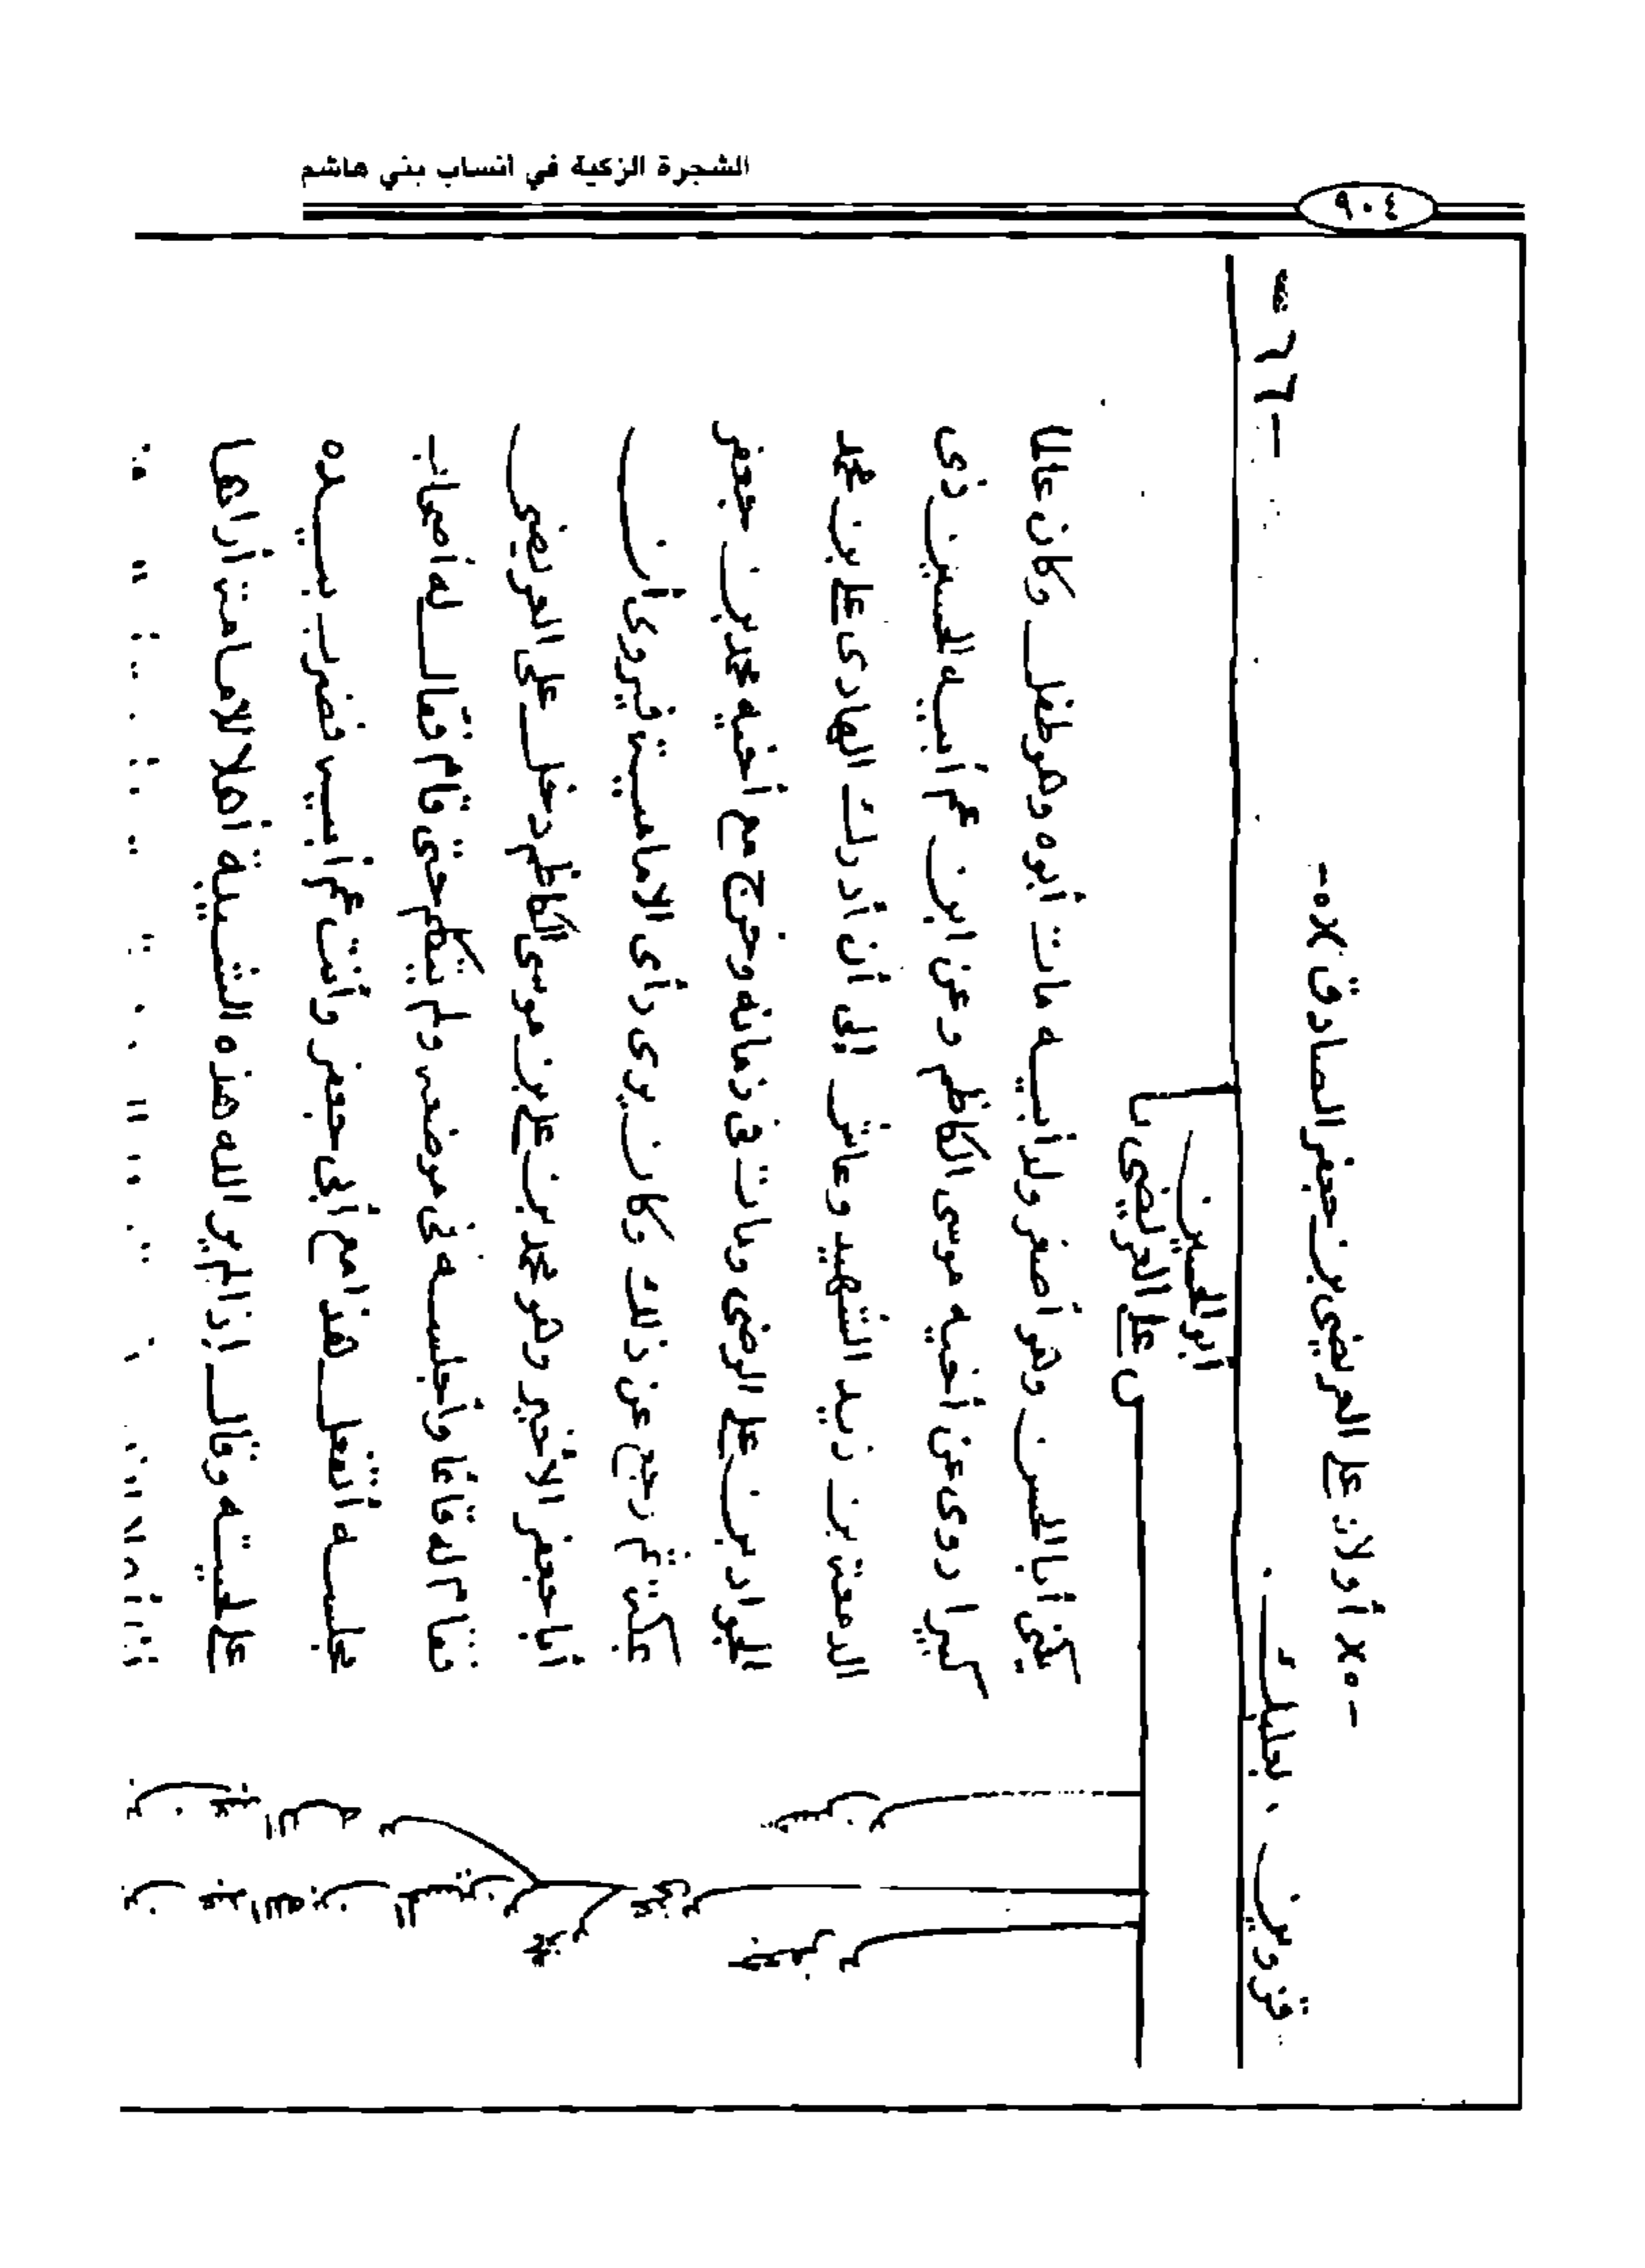 الشجرة الزكية في أنساب بني هاشم
٩٠٤
- ٦٦ -
قزوين
-٥× أولاد علي العريضي بن جعفر الصادق ×٥-
أبو الحسين
علي العريضي
يكنى أبا الحسن وهو أصغر ولد أبيه مات أبوه وهو طفل وكان عالما
كبيرا روى عن أخيه موسى الكاظم وعن ابن عم أبيه الحسين ذى
الدمعة بن زيد الشهيد وعاش إلى أن أدرك الهادى علي بن محمد
الجواد بن علي الرضى ومات في زمانه وخرج مع أخيه محمد بن جعفر
بمكة ثم رجع عن ذلك وكان يرى رأى الامامية فيروى أن
أبا جعفر الأخير وهو محمد بن علي بن موسى الكاظم دخل على العريضى
فقام له قائما وأجلسه في موضعه ولم يتكلم حتى قام فقال له أصحاب
مجلسه أتفعل هذا مع أبى جعفر وأنت عم أبيه فضرب بيده
على لحيته وقال إذا لم ير الله هذه الشيبة أهلا للامامة أراها
حسن
عيسى
جعفر
محمد
الحسين بن عبد الله